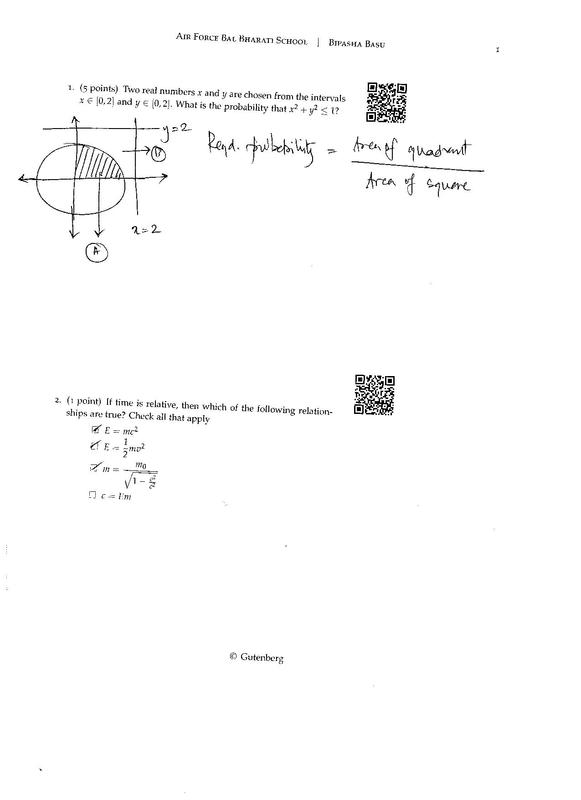 AIR FORCE BAL BHARATI SCHOOL | BIPASHA BASU
1
1. (5 points) Two real numbers x and y are chosen from the intervals
x ∈ [0,2] and y ∈ [0,2]. What is the probability that x² + y² ≤ 1?
y=2
Reqd. probability = Area of quadrant
Area of square
x=2
A
2. (1 point) If time is relative, then which of the following relation-
ships are true? Check all that apply
E = mc²
E = 1/2 mv²
m = m₀ / √(1 − v²/c²)
© Gutenberg